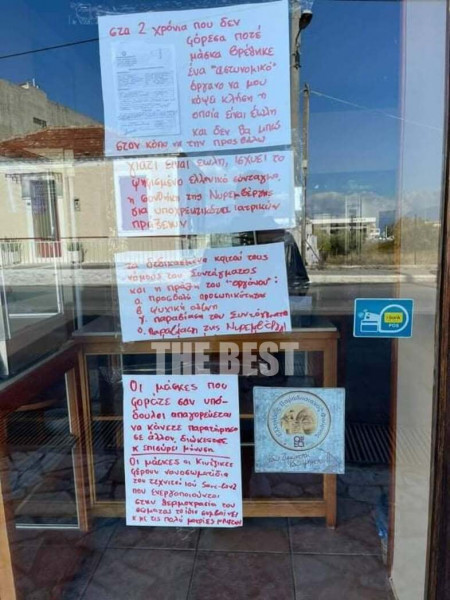 στα 2 χρόνια που δεν
φόρεσα ποτέ
μάσκα βρέθηκε
ένα "αστυνομικό"
όργανο να μου
κόψει κλήση η
οποία είναι έωλη
και δεν θα μπω
στον κόπο να την προσβάλω
Γιατί είναι έωλη, ισχύει το
ψηφισμένο Ελληνικό σύνταγμα,
η συνθήκη της Νυρεμβέργης
για υποχρεωτικότητα ιατρικών
πράξεων.
τους
νόμους του Συντάγματος
και η πράξη του "οργάνου":
α. προσβολή προσωπικότητας
β. ψυχική οδύνη
γ. παραβίαση του Συντάγματος
δ. Παραβίαση της Νυρεμβέργης
THE BEST
Οι μάσκες που
φοράτε σαν υπό-
δουλοι απαγορεύεται
να κάνετε παρατήρηση
σε άλλον, διώκεστε
κ επισύρει μήνυση
Οι μάσκες οι Κινέζικες
φέρουν νανοσωματίδια
του τεχνητού ιού
που ενεργοποιούνται
στην θερμοκρασία του
σώματος το ίδιο συμβαίνει
κ με τις πολύ
POS